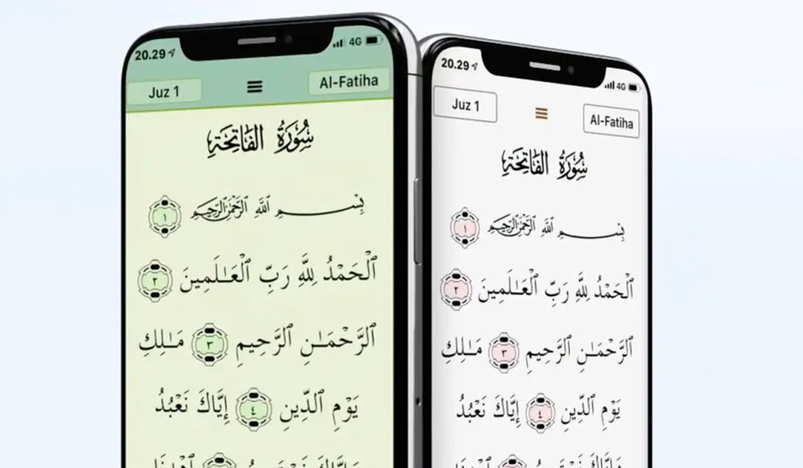 20.29
4G
Juz 1
Al-Fatiha
سُورَةُ الفَاتِحَةِ
بِسْمِ ٱللَّهِ ٱلرَّحْمَٰنِ ٱلرَّحِيمِ ١
ٱلْحَمْدُ لِلَّهِ رَبِّ ٱلْعَـٰلَمِينَ ٢
ٱلرَّحْمَـٰنِ ٱلرَّحِيمِ ٣ مَـٰلِكِ
يَوْمِ ٱلدِّينِ ٤ إِيَّاكَ نَعْبُدُ
20.29
4G
Juz 1
Al-Fatiha
سُورَةُ الفَاتِحَةِ
بِسْمِ ٱللَّهِ ٱلرَّحْمَٰنِ ٱلرَّحِيمِ ١
ٱلْحَمْدُ لِلَّهِ رَبِّ ٱلْعَـٰلَمِينَ ٢
ٱلرَّحْمَـٰنِ ٱلرَّحِيمِ ٣ مَـٰلِكِ
يَوْمِ ٱلدِّينِ ٤ إِيَّاكَ نَعْبُدُ